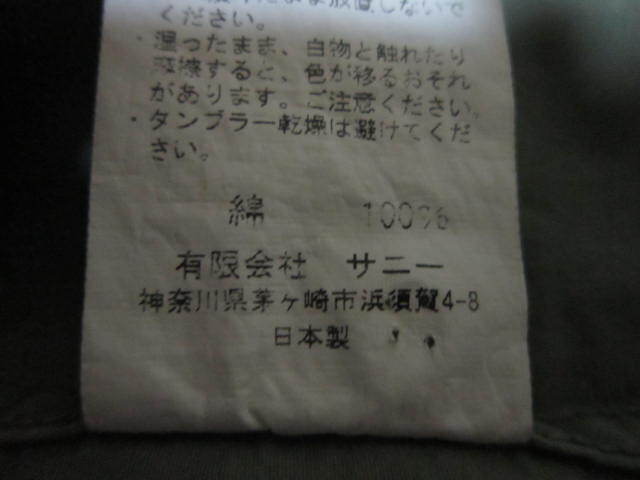 放置しないで
ください。
・湿ったまま、白物と触れたり
摩擦すると、色が移るおそれ
があります。ご注意ください。
・タンブラー乾燥は避けてくだ
さい。
綿 100%
有限会社 サニー
神奈川県茅ヶ崎市浜須賀4-8
日本製